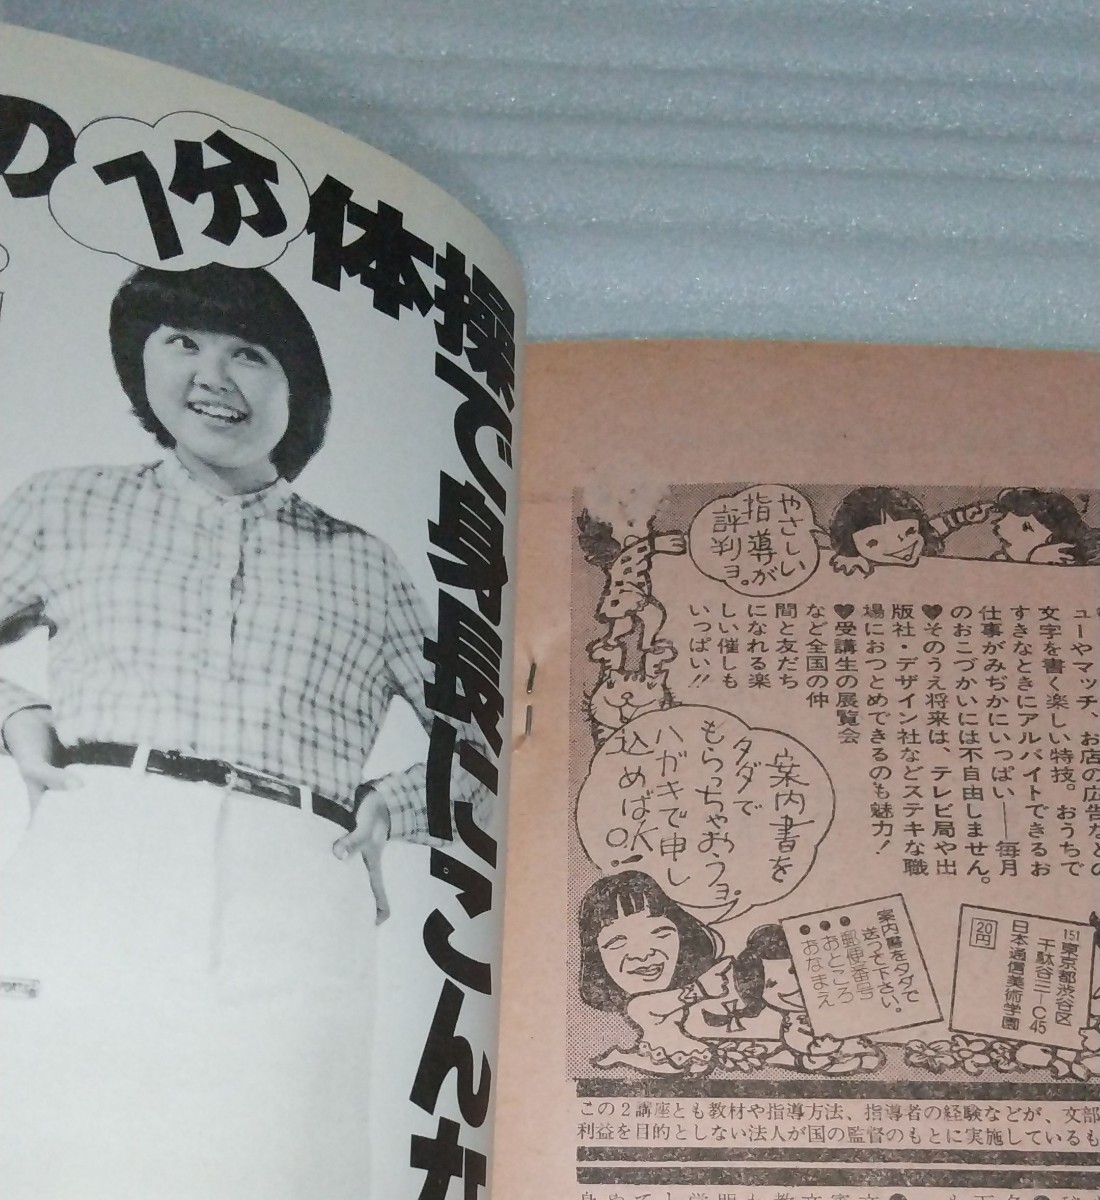 の1分体操で身長にこんな
やさしい
指導が
評判ョ。
ューやマッチ、お店の広告などの
文字を書く楽しい特技。おうちで
すきなときにアルバイトできるお
仕事がみぢかにいっぱい——毎月
のおこづかいには不自由しません。
♥そのうえ将来は、テレビ局や出
版社・デザイン社などステキな職
場におつとめできるのも魅力！
♥受講生の展覧会
など全国の仲
間と友だち
になれる楽
しい催しも
いっぱい!!
案内書を
タダで
もらっちゃおうョ。
ハガキで申し
込めばOK!
案内書をタダで
送って下さい。
●郵便番号
●おところ
●おなまえ
20円
151
東京都渋谷区
千駄谷三−C45
日本通信美術学園
この2講座とも教材や指導方法、指導者の経験などが、文部
利益を目的としない法人が国の監督のもとに実施しているも